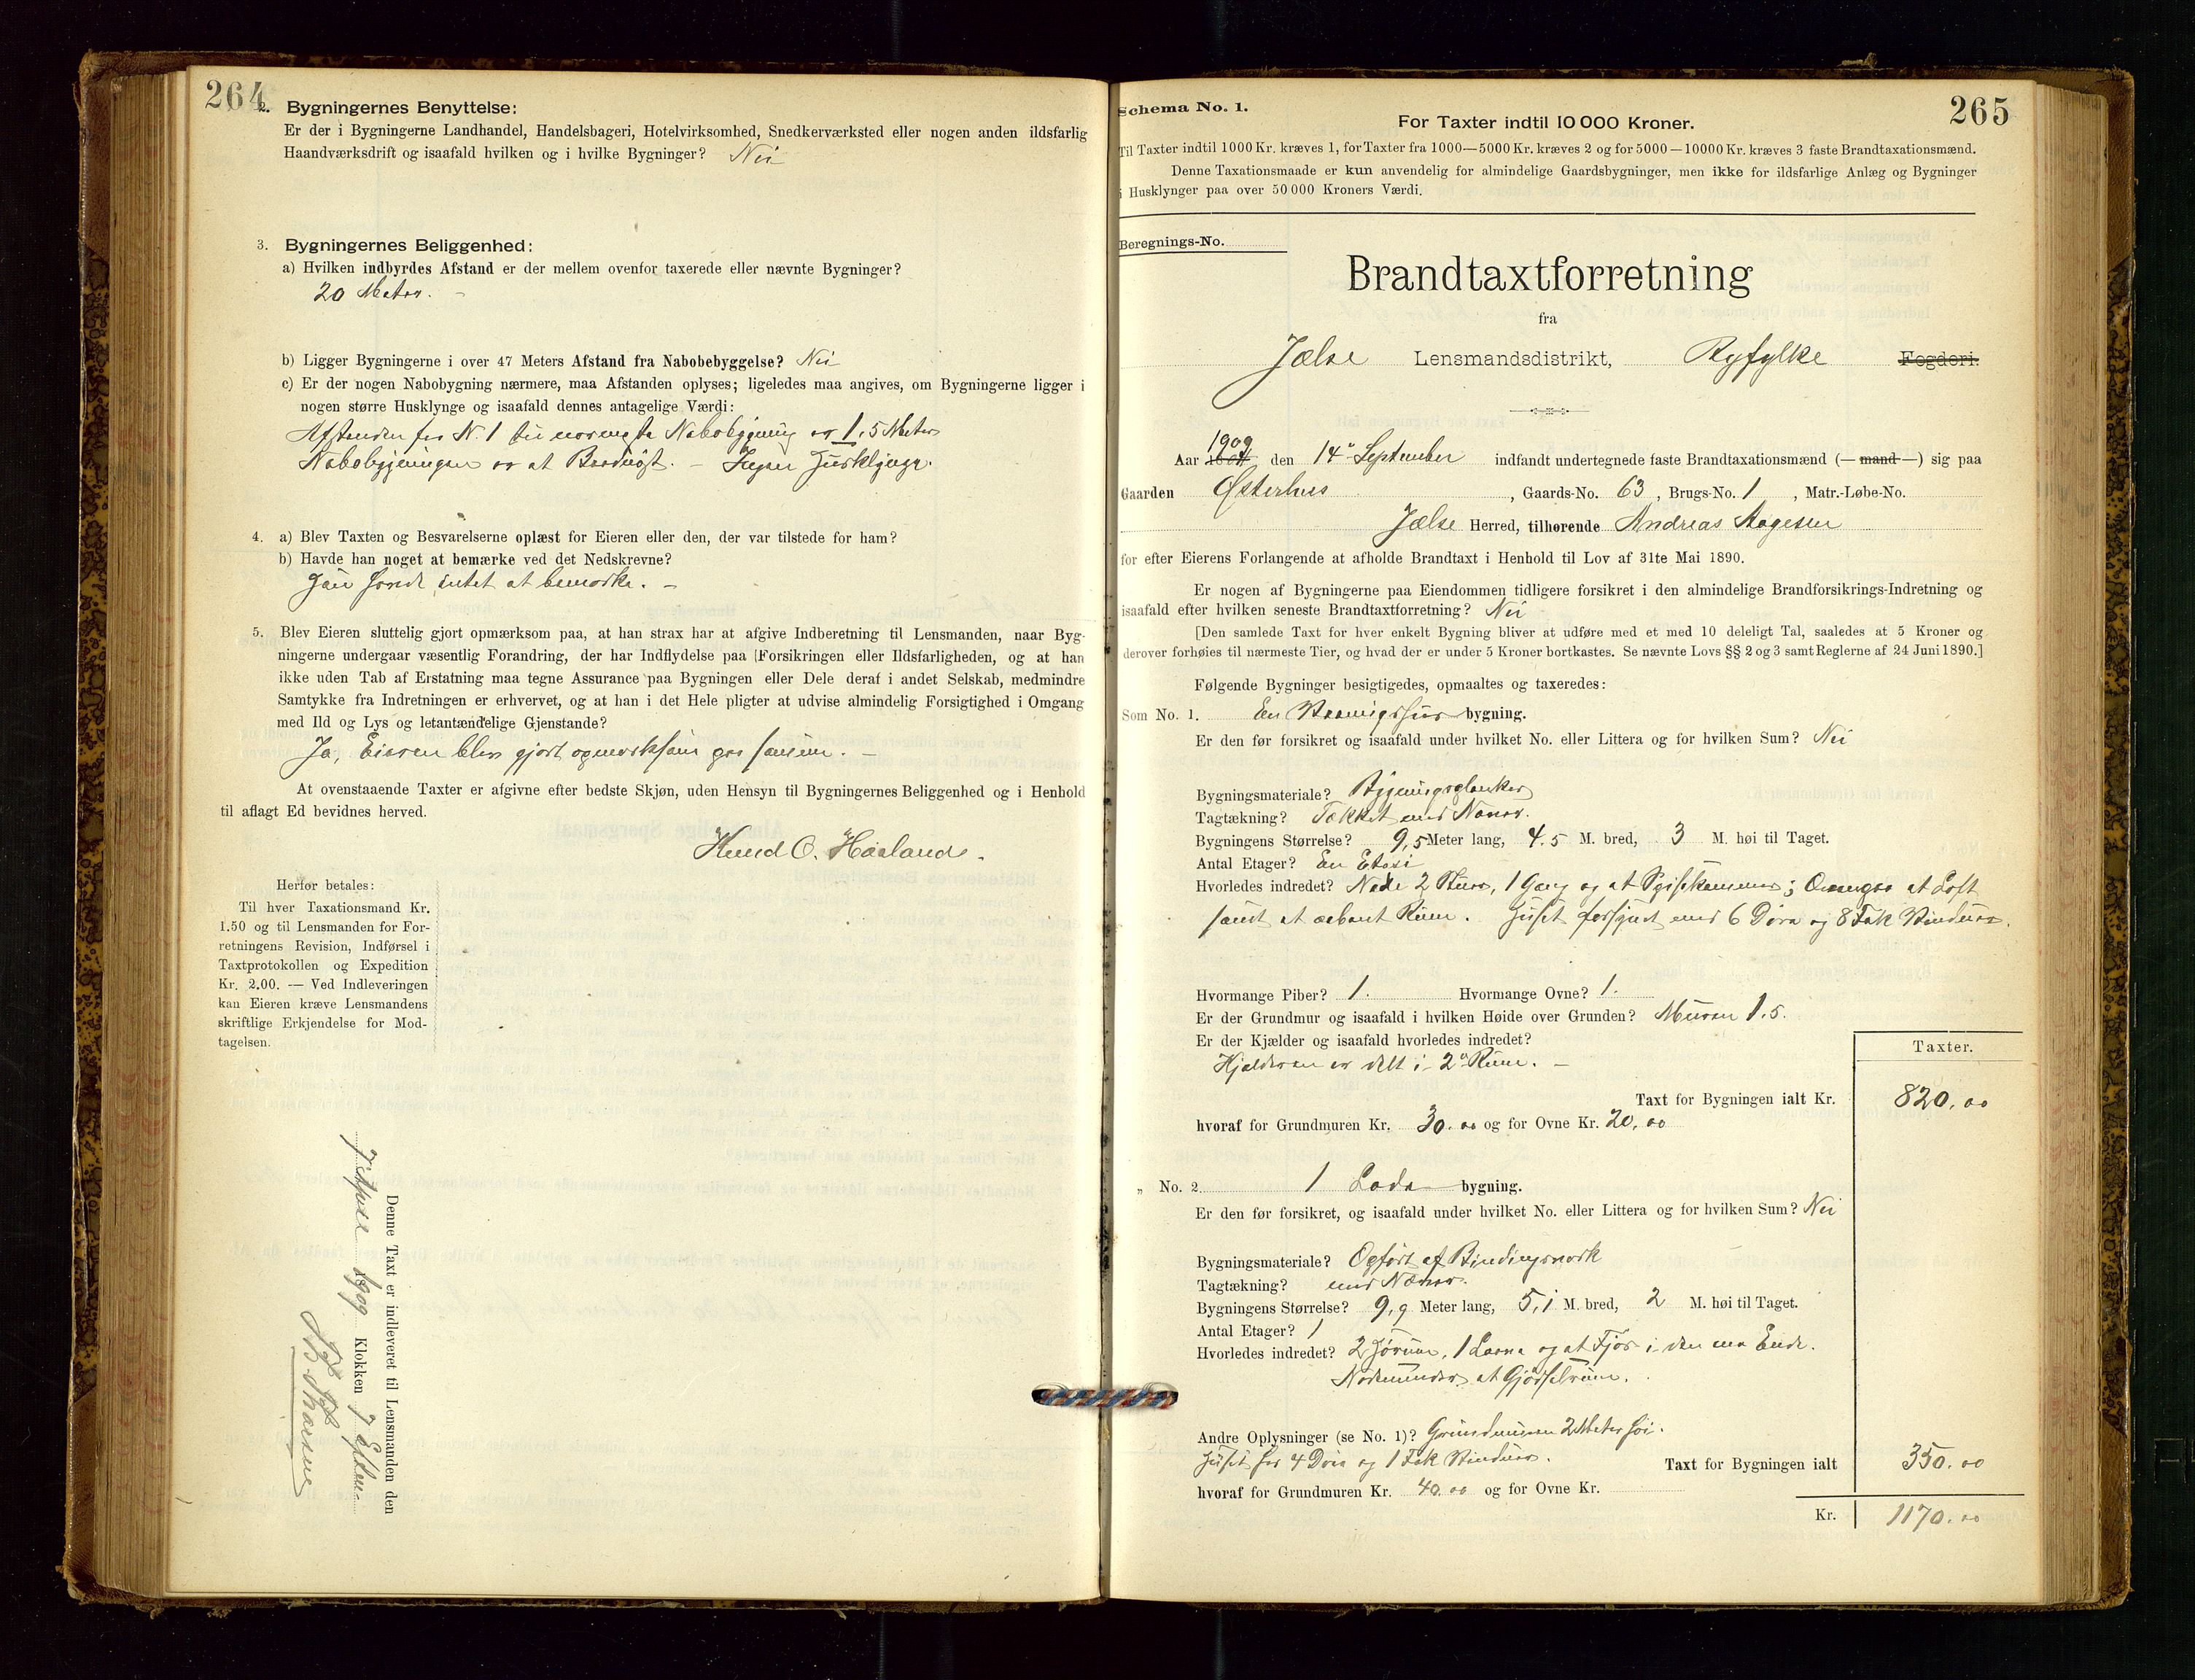 264
2. Bygningernes Benyttelse:
Er der i Bygningerne Landhandel, Handelsbageri, Hotelvirksomhed, Snedkerværksted eller nogen anden ildsfarlig
Haandværksdrift og isaafald hvilken og i hvilke Bygninger? Nei
3. Bygningernes Beliggenhed:
a) Hvilken indbyrdes Afstand er der mellem ovenfor taxerede eller nævnte Bygninger?
20 Meter. –
b) Ligger Bygningerne i over 47 Meters Afstand fra Nabobebyggelse? Nei
c) Er der nogen Nabobygning nærmere, maa Afstanden oplyses; ligeledes maa angives, om Bygningerne ligger i
nogen større Husklynge og isaafald dennes antagelige Værdi:
Afstanden fra N. 1 til nærmeste Nabobygning er 1,5 Meter
Nabobygningen er et Baadnøst. – Ingen Husklynge.
4. a) Blev Taxten og Besvarelserne oplæst for Eieren eller den, der var tilstede for ham?
b) Havde han noget at bemærke ved det Nedskrevne?
Han havde intet at bemærke. –
5. Blev Eieren sluttelig gjort opmærksom paa, at han strax har at afgive Indberetning til Lensmanden, naar Byg-
ningerne undergaar væsentlig Forandring, der har Indflydelse paa Forsikringen eller Ildsfarligheden, og at han
ikke uden Tab af Erstatning maa tegne Assurance paa Bygningen eller Dele deraf i andet Selskab, medmindre
Samtykke fra Indretningen er erhvervet, og at han i det Hele pligter at udvise almindelig Forsigtighed i Omgang
med Ild og Lys og letantændelige Gjenstande?
Ja, Eieren blev gjort opmerksam paa samme. –
At ovenstaaende Taxter er afgivne efter bedste Skjøn, uden Hensyn til Bygningernes Beliggenhed og i Henhold
til aflagt Ed bevidnes herved.
Knud O. Haaland.
Herfor betales:
Til hver Taxationsmand Kr.
1.50 og til Lensmanden for For-
retningens Revision, Indførsel i
Taxtprotokollen og Expedition
Kr. 2.00. — Ved Indleveringen
kan Eieren kræve Lensmandens
skriftlige Erkjendelse for Mod-
tagelsen.
Denne Taxt er indleveret til Lensmanden den
1909 Klokken 7 Efterm.
265
Schema No. 1.
For Taxter indtil 10 000 Kroner.
Til Taxter indtil 1000 Kr. kræves 1, for Taxter fra 1000—5000 Kr. kræves 2 og for 5000—10000 Kr. kræves 3 faste Brandtaxationsmænd.
Denne Taxationsmaade er kun anvendelig for almindelige Gaardsbygninger, men ikke for ildsfarlige Anlæg og Bygninger
i Husklynger paa over 50 000 Kroners Værdi.
Beregnings-No.
Brandtaxtforretning
fra
Jælse Lensmandsdistrikt, Ryfylke Fogderi.
Aar 1909 den 14 September indfandt undertegnede faste Brandtaxationsmænd (— mand —) sig paa
Gaarden Østerhus, Gaards-No. 63, Brugs-No. 1, Matr.-Løbe-No.
Jælse Herred, tilhørende Andreas Aagesen
for efter Eierens Forlangende at afholde Brandtaxt i Henhold til Lov af 31te Mai 1890.
Er nogen af Bygningerne paa Eiendommen tidligere forsikret i den almindelige Brandforsikrings-Indretning og
isaafald efter hvilken seneste Brandtaxtforretning? Nei
[Den samlede Taxt for hver enkelt Bygning bliver at udføre med et med 10 deleligt Tal, saaledes at 5 Kroner og
derover forhøies til nærmeste Tier, og hvad der er under 5 Kroner bortkastes. Se nævnte Lovs §§ 2 og 3 samt Reglerne af 24 Juni 1890.]
Følgende Bygninger besigtigedes, opmaaltes og taxeredes:
Som No. 1. En Vaanigshus bygning.
Er den før forsikret og isaafald under hvilket No. eller Littera og for hvilken Sum? Nei
Bygningsmateriale? Bygningsplanker
Tagtækning? Tækket med Næver.
Bygningens Størrelse? 9,5 Meter lang, 4.5 M. bred, 3 M. høi til Taget.
Antal Etager? En Etasi
Hvorledes indredet? Nede 2 Stuer, 1 Gang og et Spisekammer; Ovenpaa et Loft
samt et Rum. Huset forsynt med 6 Døre og 8 Fak Vinduer.
Hvormange Piber? 1. Hvormange Ovne? 1.
Er der Grundmur og isaafald i hvilken Høide over Grunden? Muren 1.5.
Er der Kjælder og isaafald hvorledes indredet?
Kjælderen er delt i 2 Rum. –
Taxter.
Taxt for Bygningen ialt Kr. 820.00
hvoraf for Grundmuren Kr. 30.00 og for Ovne Kr. 20,00
„ No. 2. 1 Lade bygning.
Er den før forsikret, og isaafald under hvilket No. eller Littera og for hvilken Sum? Nei
Bygningsmateriale? Opført af Bindingsverk
Tagtækning? med Næver.
Bygningens Størrelse? 9,9 Meter lang, 5,1 M. bred, 2 M. høi til Taget.
Antal Etager? 1
Hvorledes indredet? 2 Hørum, 1 og et Fjøs i den ene Ende.
Nedenunder et Gjødselrum.
Andre Oplysninger (se No. 1)? Grundmuren 2 Meter høi.
Huset har 4 Døre og 1 Fak Vinduer. Taxt for Bygningen ialt 350.00
hvoraf for Grundmuren Kr. 40.00 og for Ovne Kr.
Kr. 1170.00